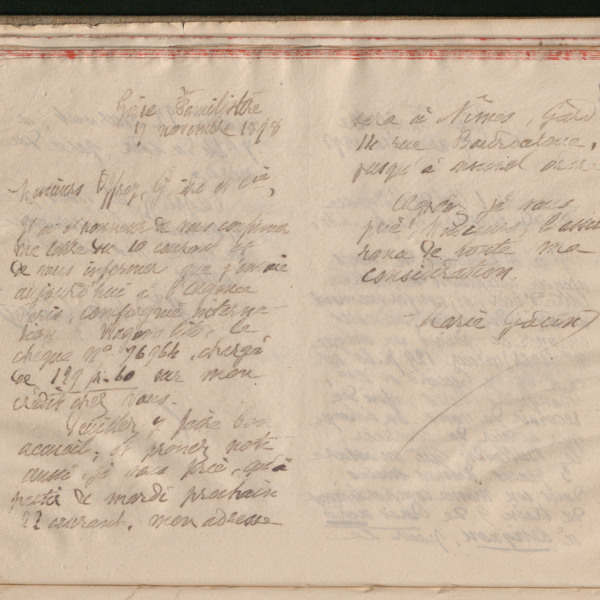 Guise Familistère
17 novembre 1898
Messieurs Offroy, Guiard et Cie,
J'ai l'honneur de vous confirmer
ma lettre du 10 courant et
de vous informer que j'envoie
aujourd'hui à l'agence
Paris, compagnie interna-
tion Wagons-lits, le
chèque No 76964, chargé
de 129 fr. 60 sur mon
crédit chez vous.
Veuillez y faire bon
accueil, et prenez note
aussi, je vous prie, qu'à
partir de mardi prochain
22 courant, mon adresse
sera à Nîmes, Gard
14 rue Bourdaloue,
jusqu'à nouvel ordre.
Agréez, je vous
prie, Messieurs, l'assu
rance de toute ma
considération
Marie Godin